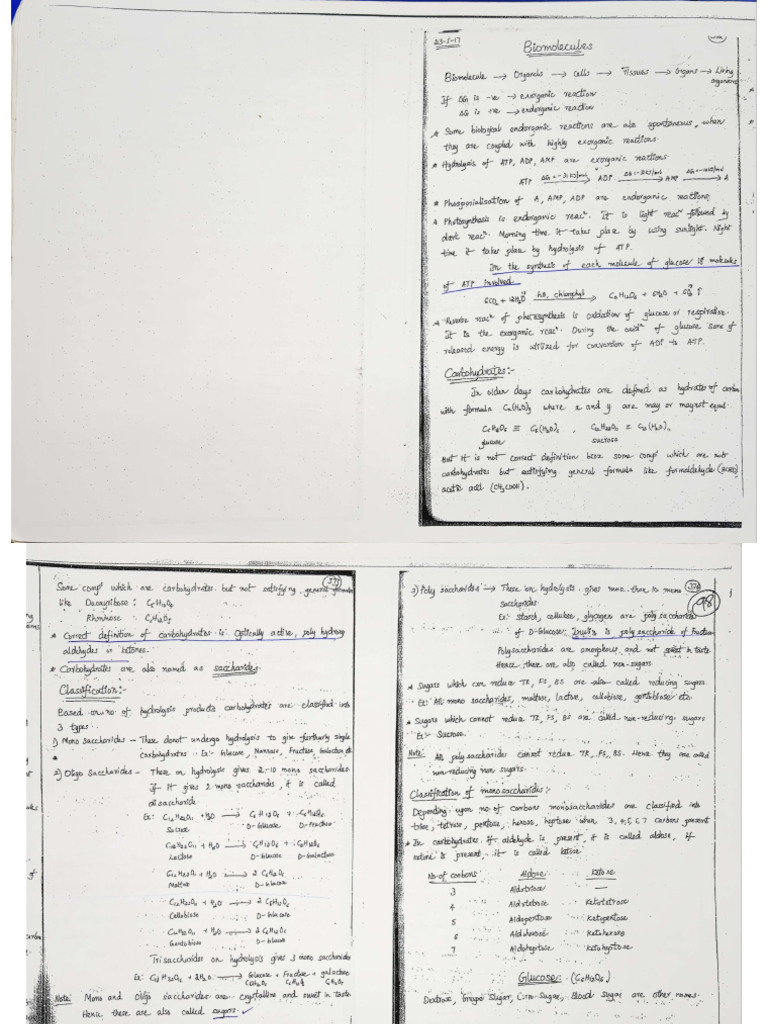 23-5-17
Biomolecules
Biomolecule → Organels → Cells → Tissues → Organs → Living
organisms
If ΔG is -ve → exorganic reaction
ΔG is +ve → endorganic reaction
* Some biological endorganic reactions are also spontaneous, when
they are coupled with highly exorganic reactions.
* Hydrolysis of ATP, ADP, AMP are exorganic reactions
ATP → ADP → AMP → A
* Phosporialisation of A, AMP, ADP are endorganic reactions
* Photosynthesis is endorganic reacn. It is light reacn followed by
dark reacn. Morning time it takes place by using sunlight. Night
time it takes place by hydrolysis of ATP.
In the synthesis of each molecule of glucose 18 molecules
of ATP involved
6CO2 + 12H2O hν, chlorophyl → C6H12O6 + 6H2O + 6O2 ↑
* Reverse reacn of photosynthesis is oxidation of glucose or respiration.
It is the exorganic reacn. During the oxidn of glucose some of
released energy is utilized for conversion of ADP to ATP.
Carbohydrates:-
In older days carbohydrates are defined as hydrates of carbon
with formula Cx(H2O)y where x and y are may or maynot equal.
C6H12O6 ≡ C6(H2O)6 , C12H22O11 ≡ C12(H2O)11
glucose sucrose
But it is not correct definition bcoz some compds which are not
carbohydrates but satisfying general formula like formaldehyde (HCHO)
acetic acid (CH3COOH).
Some compds which are carbohydrates but not satisfying general formula
like Deoxyribose : C5H10O4
Rhmnose : C6H12O5
* Correct definition of carbohydrates is optically active, poly hydroxy
aldehydes or ketones.
* Carbohydrates are also named as saccharides
Classification:-
Based on no of hydrolysis products carbohydrates are classified into
3 types.
1) Mono Saccharides - These donot undergo hydrolysis to give furtherly single
carbohydrates Ex:- Glucose, Mannose, Fructose, Galactose etc
2) Oligo Saccharides - These on hydrolysis gives 2-10 mono saccharides
If it gives 2 mono saccharides, it is called
disaccharide
Ex: C12H22O11 + H2O → C6H12O6 + C6H12O6
Sucrose D-Glucose D-Fructose
C12H22O11 + H2O → C6H12O6 + C6H12O6
Lactose D-Glucose D-Galactose
C12H22O11 + H2O → 2 C6H12O6
Maltose D-Glucose
C12H22O11 + H2O → 2 C6H12O6
Cellobiose D-Glucose
C12H22O11 + H2O → 2 C6H12O6
Gentiobiose D-Glucose
Trisaccharides on hydrolysis gives 3 mono saccharides
Ex: C18H32O16 + 2H2O → Glucose + Fructose + galactose
C6H12O6 C6H12O6 C6H12O6
Note: Mono and Oligo saccharides are crystalline and sweet in taste
Hence these are also called sugars.
3) Poly saccharides → These on hydrolysis gives more than 10 mono
saccharides
98
Ex: Starch, cellulose, glycogen are poly saccharides
of D-Glucose; Inulin is poly saccharide of Fructose
Poly saccharides are amorphous and not sweet in taste
Hence these are also called non-sugars.
* Sugars which can reduce TR, FS, BS are also called reducing sugars.
Ex: All mono saccharides, maltose, lactose, cellobiose, gentiobiose etc.
* Sugars which cannot reduce TR, FS, BS are called non-reducing sugars
Ex:- Sucrose.
Note: All poly saccharides cannot reduce TR, FS, BS. Hence they are called
non-reducing non sugars.
Classification of monosaccharides:-
Depending upon no of carbons monosaccharides are classified into
triose, tetrose, pentose, hexose, heptose when 3,4,5,6,7 carbons present
* In carbohydrates if aldehyde is present, it is called aldose, If
ketone is present, it is called ketose.
No of carbons Aldose Ketose
3 Aldotriose —
4 Aldotetrose Ketotetrose
5 Aldopentose Ketopentose
6 Aldohexose Ketohexose
7 Aldoheptose Ketoheptose
Glucose: (C6H12O6)
Dextrose, Grape Sugar, Corn Sugar, Blood sugar are other names